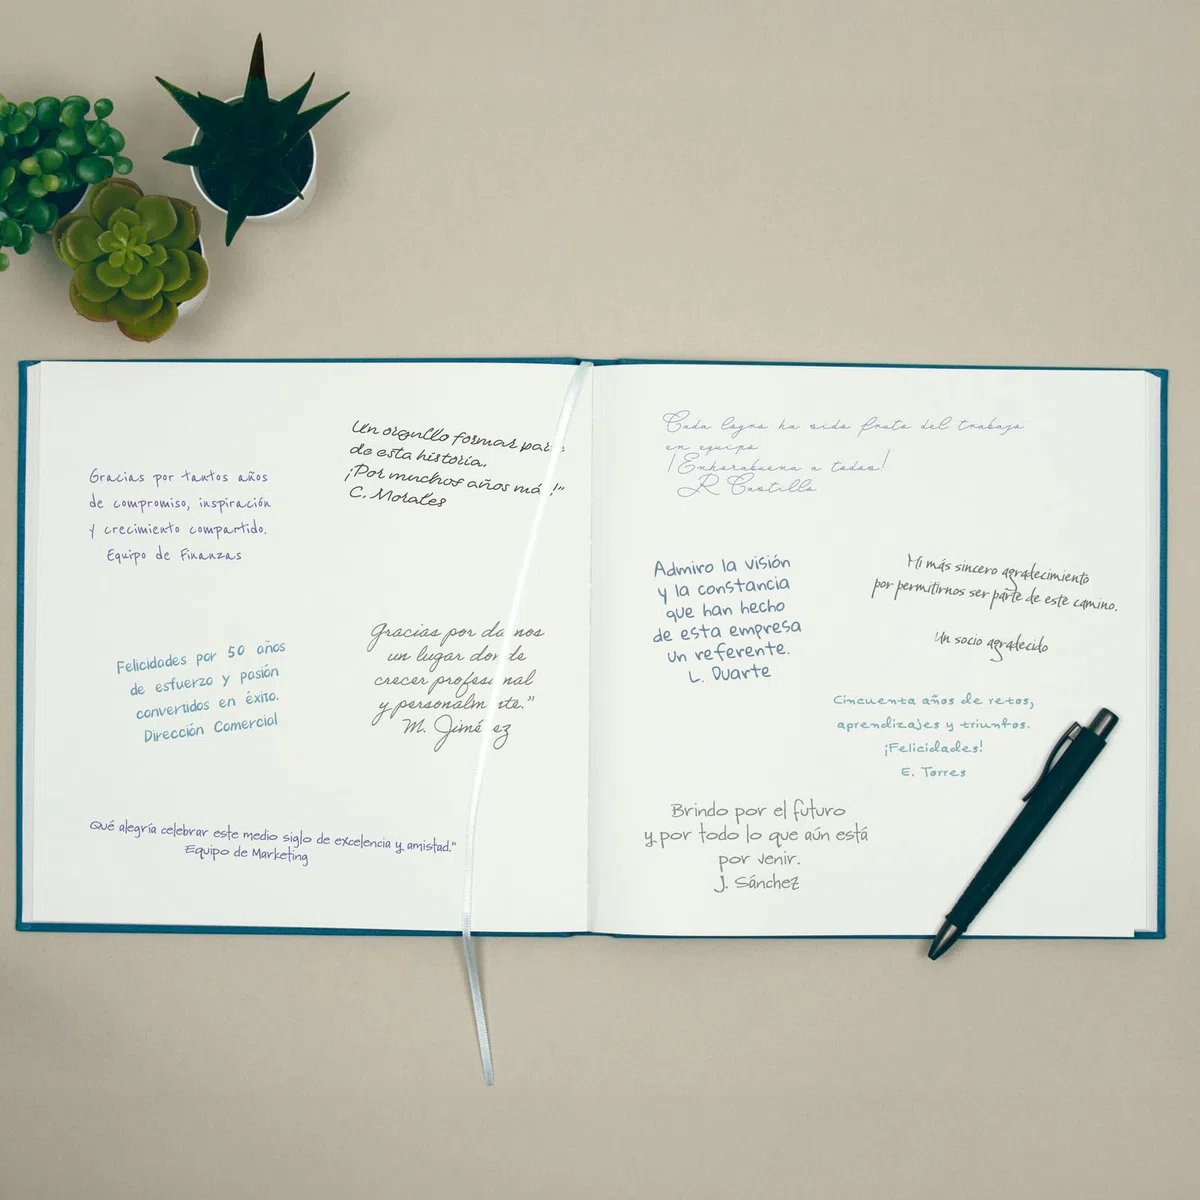 Gracias por tantos años
de compromiso, inspiración
y crecimiento compartido.
Equipo de Finanzas
Un orgullo formar
de esta historia.
¡Por muchos años !"
C. Morales
Felicidades por 50 años
de esfuerzo y pasión
convertidos en éxito.
Dirección Comercial
Gracias por
un lugar
crecer
y
M.
Qué alegría celebrar este medio siglo de excelencia y amistad."
Equipo de Marketing
Cada logro ha sido fruto del trabajo
en equipo
¡Enhorabuena a todos!
R Castillo
Admiro la visión
y la constancia
que han hecho
de esta empresa
un referente.
L. Duarte
Mi más sincero agradecimiento
por permitirnos ser parte de este camino.
Un socio agradecido
Cincuenta años de retos,
aprendizajes y triunfos.
¡Felicidades!
E. Torres
Brindo por el futuro
y por todo lo que aún está
por venir.
J. Sánchez